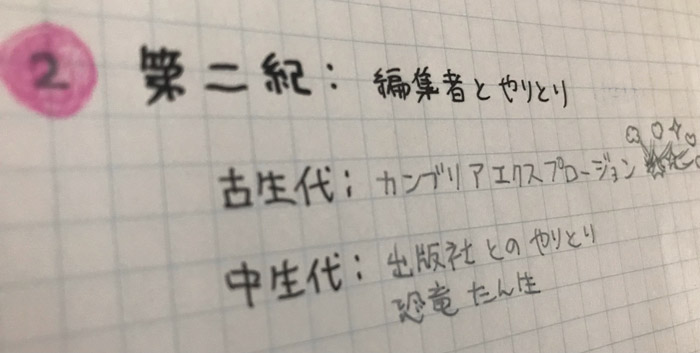 2 第二紀: 編集者とやりとり
古生代: カンブリアエクスプロージョン
中生代: 出版社とのやりとり
恐竜たん生